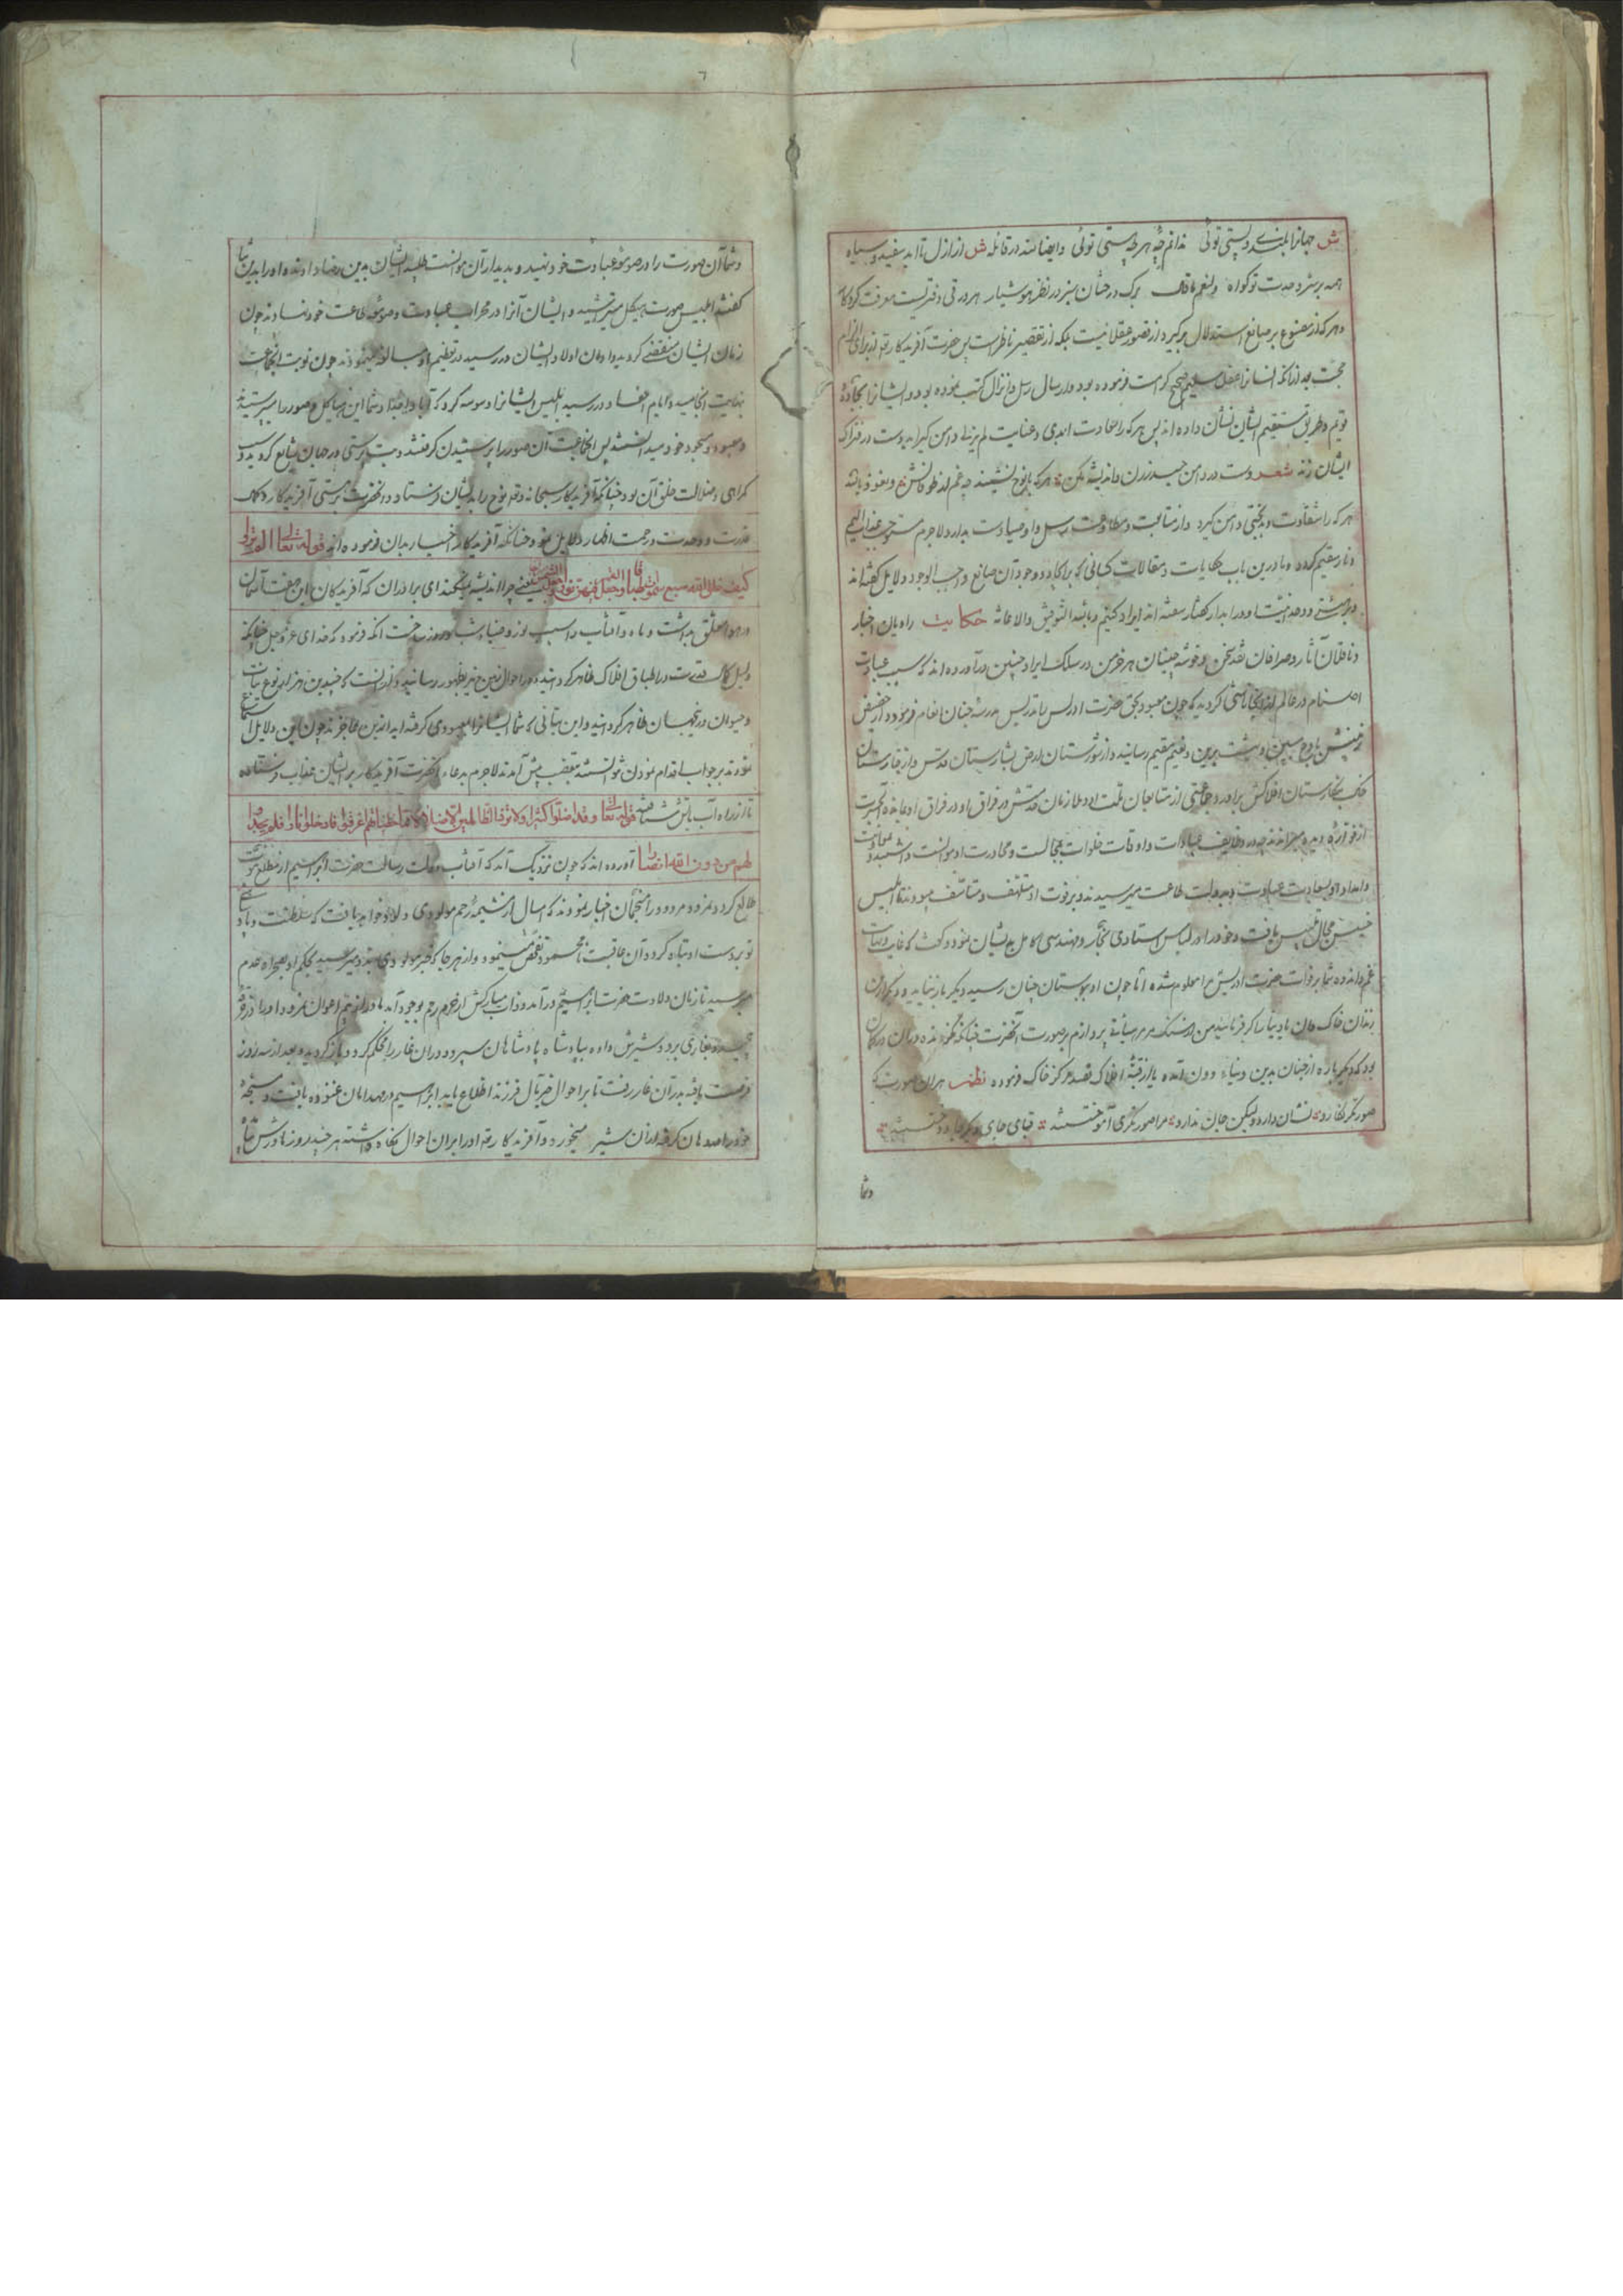 ش جهانرا بلندی و پستی توئی ندانم چه هر چه هستی توئی وایضا منه در قائله ش از ازل تا ابد سفید و سیاه
همه بر سر وحدت تو گواه ولنعم ماقال برک درختان سبز در نظر هوشیار هر ورقی دفتریست معرفت کردکار
و هر که از مصنوع بر صانع استدلال نگیرد از قصور عقلا نیست بلکه از تقصیر ناظر است پس حضرت آفریدکار از برای الزام
حجت بعد از انکه انسانرا عقل سلیم صحیح کرامت فرموده بود و ارسال رسل و انزال کتب نموده بود و ایشانرا بجادهٔ
قویم و طریق مستقیم ایشان نشان داده اند پس هر که را سعادت ابدی و عنایت لم یزلی دامن کیر اید دست در فتراک
ایشان زند شعر دست در دامن حیدر زن و اندیشه مکن هر که با نوح نشیند چه غم از طوفانش و نعوذ بالله
هر که را شقاوت و بدبختی دامن کیرد و از متابعت و مطاوعت رسل و اوصیاء دست بدارد لاجرم مستوجب عذاب الیم
و نار مقیم کردد و ما درین باب حکایات و مقالات کسانی که بر اکابر و وجود آن صانع واجب الوجود دلایل گفته اند
و بر هستی و وحدانیت او در ابدار گفتار سفته اند ایراد کنیم و بالله التوفیق والاعانه حکایت راویان اخبار
و ناقلان آثار و صرافان نقد سخن و خوشه چینان هر خرمن در سلک ایراد چنین در آورده اند که سبب عبادت
اصنام در عالم از اینجا ناشی کردید که چون معبود بحق حضرت ادریس را تدریس مدرسه جنان انعام فرمود و از حضیض
زمینش باوج سپهر و بهشت برین و نعیم مقیم رسانید و از شورستان ارض بشارستان قدس و از خارستان
خاک بنکارستان افلاکش برآورد جماعتی از متابعان ملت او و ملازمان قدسش در فراق او
از قواره دیده میراندند چه در وظایف عبادات و اوقات خلوات بمجالست و مجاورت او موانست داشتند و
و امداد او بسعادت عبادت و بدولت طاعت میرسیدند و بر فوت او متلهف و متاسف میبودند تا ابلیس
خسیس مجال تلبیس یافت و خود را در لباس استادی نجار و مهندسی کامل بدیشان نمود و گفت که غایت
غم و اندوه شما بر فوات حضرت ادریس مرا معلوم شده اما چون او ببوستان جنان رسید دیکر باز نیاید و دیکر ازین
زندان خاک دان یاد نیارد اکر فرمائید من از سنک مرمر پردازم بر صورت آنحضرت چنانکه
بود که دیکر باره از جنان بدین دنیاء دون آمده یا از قبه افلاک قصد مرکز خاک فرموده نظم هر ان صورت که
صورتکر نکارد نشان دارد ولیکن جان ندارد مرا صورتکری آموختستند قبای جای دیکر دوختستند
وشما
وشما آن صورت را در صومعه عبادت خود نهید و بدیدار آن موانست طلبید ایشان بدین رضا دادند و او را بدین
گفتند ابلیس صورت هیکل میتراشید و ایشان آنرا در محراب عبادت و صومعه طاعت خود نهادند چون
زمان ایشان منقضی کردید و اوان اولاد ایشان در رسید در تعظیم او مبالغه مینمودند چون نوبت انجماعت
بنهایت انجامید و ایام احفاد در رسید ابلیس ایشانرا وسوسه کرد که آباء و اجداد شما این هیاکل و صور را میپرستیدند
و معبود و مسجود خود میدانستند پس انجماعت آن صور را پرستیدن کرفتند و بت پرستی در جهان شایع کردید و سبب
کمراهی و ضلالت خلق آن بود چنانکه آفریدکار سبحانه و تع نوح را بدیشان فرستاد و انحضرت بر هستی آفریدکار و کمال
قدرت و وحدت و رحمت اظهار دلایل نمود چنانکه آفریدکار اخبار بدان فرموده اند قوله تعالی الم تروا
کیف خلق الله سبع سموات طباقا وجعل القمر فیهن نورا وجعل الشمس سراجا یعنی چرا اندیشه نمیکنید ای برادران که آفریدکان این هفت آسمان
در هوا معلق بداشت و ماه و آفتاب را سبب نور و ضیاء شب و روز ساخت انکه فرمود که خدای عز وجل چنانکه
دلیل کمال قدرت در اطباق افلاک ظاهر کردانید در احوال زمین نیز بظهور رسانید و از آنست که چندین هزار نوع نبات
و حیوان در جهان ظاهر کردانید و این بتانی که شما ایشانرا بمعبودی کرفته اید از این عاجزند چون این دلایل استماع
نمودند بر جواب اقدام نمودن نتوانستند بتعصب پیش آمدند لاجرم بدعاء انحضرت آفریدکار بر ایشان عذاب فرستاد
تا از راه آب بآتش شتافتند قوله تعالی وقد اضلوا کثیرا ولا تزد الظالمین الا ضلالا مما خطیئاتهم اغرقوا فادخلوا نارا فلم یجدوا
لهم من دون الله انصارا آورده اند که چون نزدیک آمد که آفتاب دولت رسالت حضرت ابراهیم از مطلع نبوت
طالع کردد نمرود مردود را منجمان اخبار نمودند که امسال از مشیمه رحم مولودی ولادت خواهد یافت که سلطنت و پادشاهی
تو بر دست او تباه کردد آن عاقبت نامحمود تفحص مینمود و از هر جا که خبر مولودی بدو میرسید بحکم او بصحراء عدم
میرسید تا زمان ولادت حضرت ابراهیم در آمد و ذات مبارکش از حرم رحم بوجود آمد مادر از بیم اعوان نمرود او را در خرقه
پیچیده بغاری برد و شیرش داده بپادشاه پادشاهان سپرد و در ان غار را محکم کرد و باز کردید و بعد از سه روز
فرصت یافته بدر آن غار رفت تا بر احوال فرزند اطلاع یابد ابراهیم را در مهد امان غنوده یافت و سبابه
خود را در دهان کرفته از آن شیر میخورد و آفریدکار او را بر ان احوال نکاه داشته هر چند روز مادرش